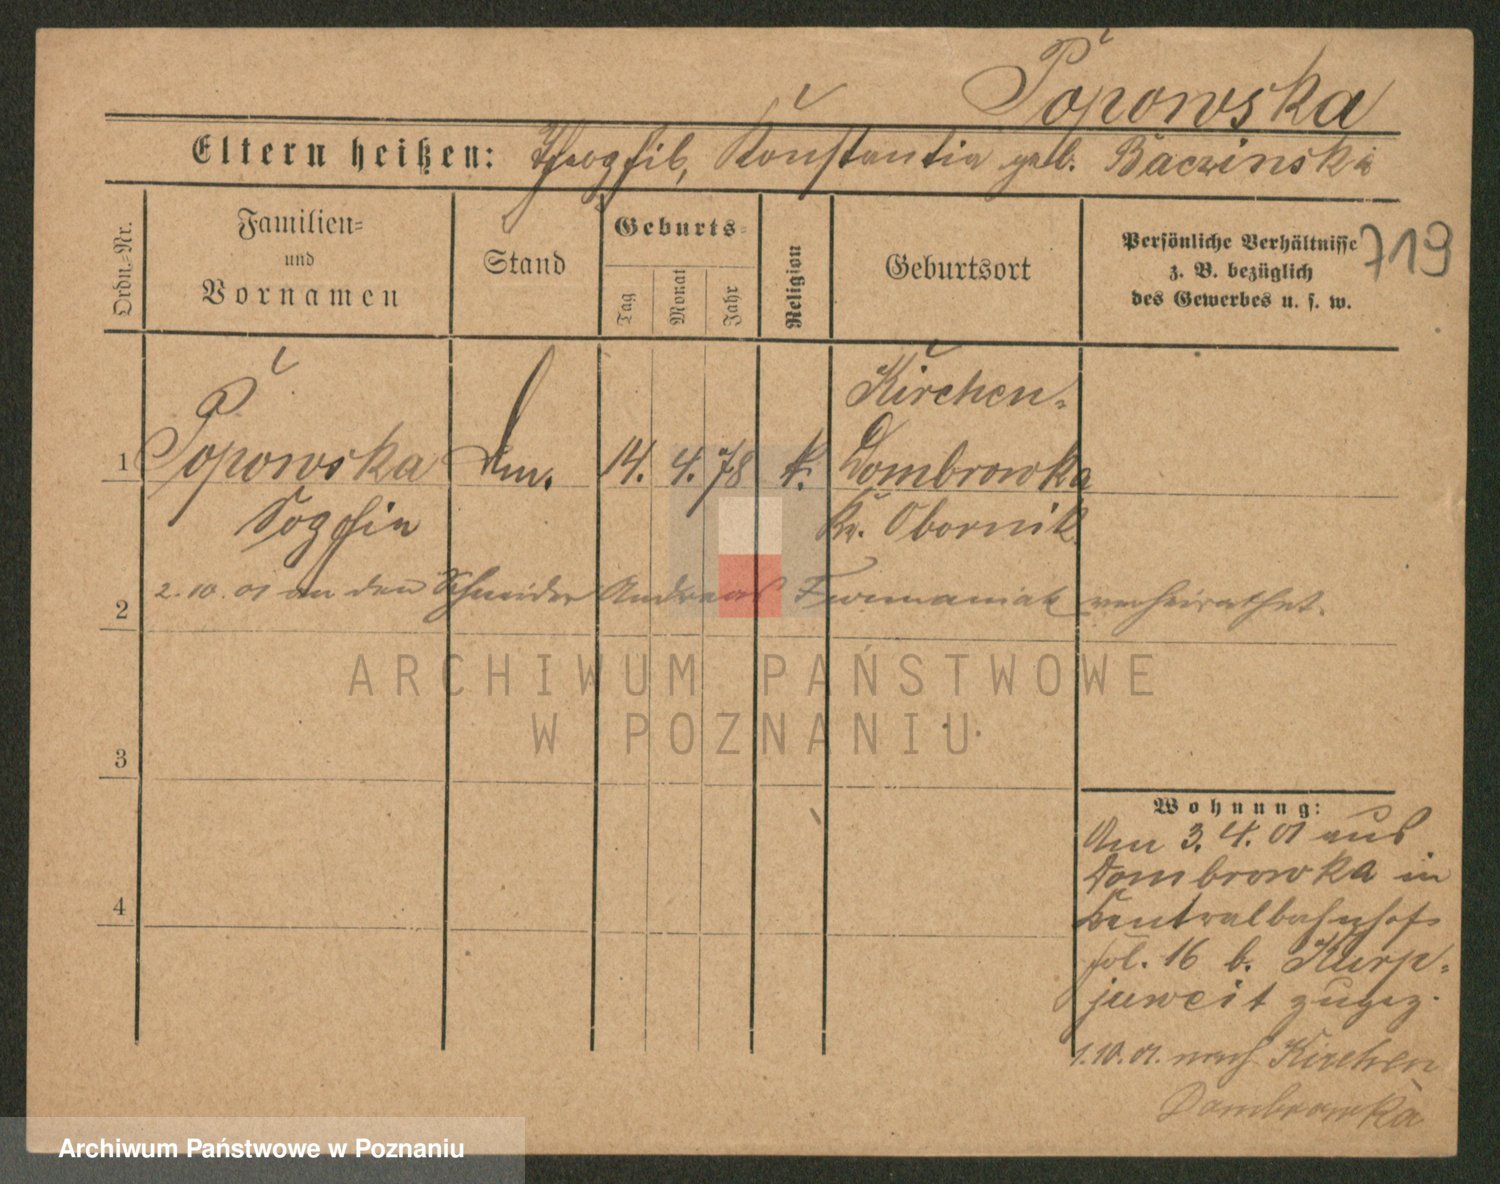 Popowska
Eltern heißen: Theophil, Konstantia geb. Baczinska
Ordn.-Nr.
Familien-
und
Vornamen
Stand
Geburts-
Tag
Monat
Jahr
Religion
Geburtsort
Persönliche Verhältnisse
z. B. bezüglich
des Gewerbes u. s. w.
719
1 Popowska 14. 4. 78 k. Kirchen-
Dombrowka
Sophia Kr. Obornik
2 2.10.01 an den Schneider Andreas verheirathet.
ARCHIWUM PAŃSTWOWE
W POZNANIU
3
Wohnung:
Am 3. 4. 01 aus
Dombrowka in
Centralbahnhof
16 b.
zugez.
4
1.10.01. nach Kirchen
Dombrowka
Archiwum Państwowe w Poznaniu